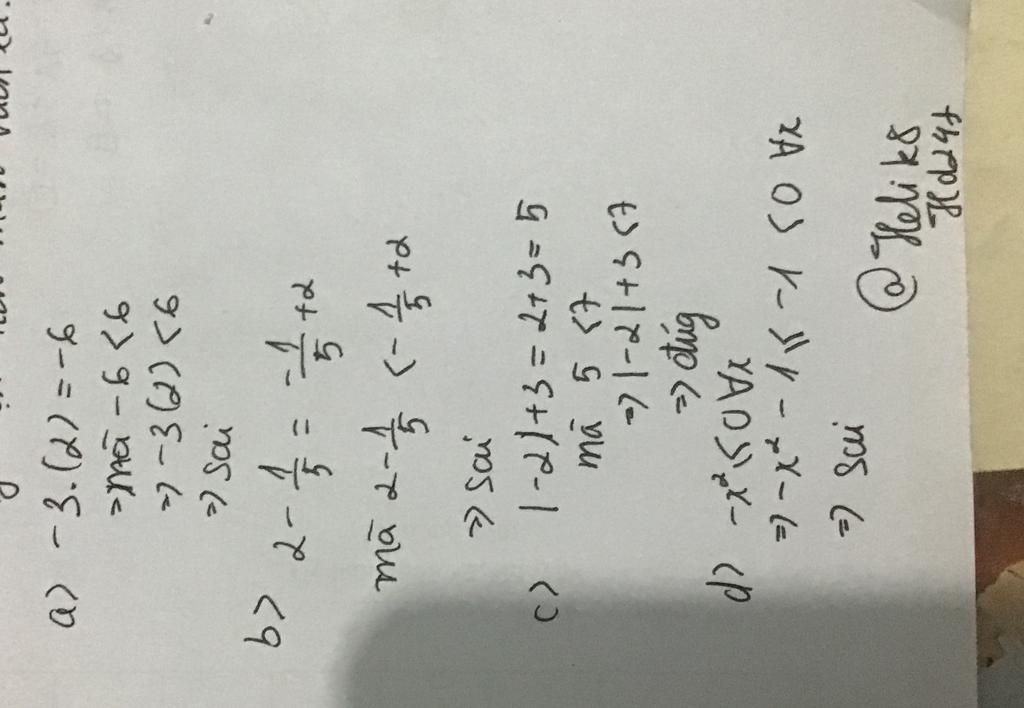 a) -3.(2) = -6
=> mã -6 < 6
=> -3(2) < 6
=> sai
b) 2 - 1/5 = -1/5 + 2
mã 2 - 1/5 < -1/5 + 2
=> sai
c) |-2| + 3 = 2 + 3 = 5
mã 5 < 7
=> |-2| + 3 < 7
=> đúg
d) -x² ≤ 0 ∀x
=> -x² - 1 ≤ -1 < 0 ∀x
=> sai
@Helik8
Hd247